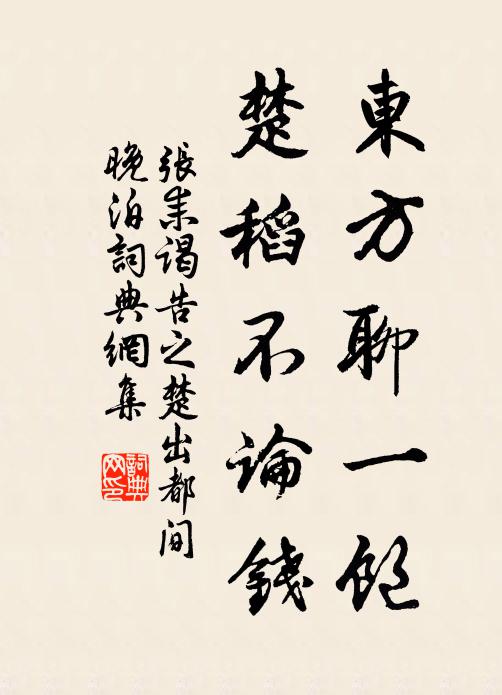 東方聊一飽
楚稻不論錢
張耒謁告之楚出都間
晚泊詞典網集
詞典网印